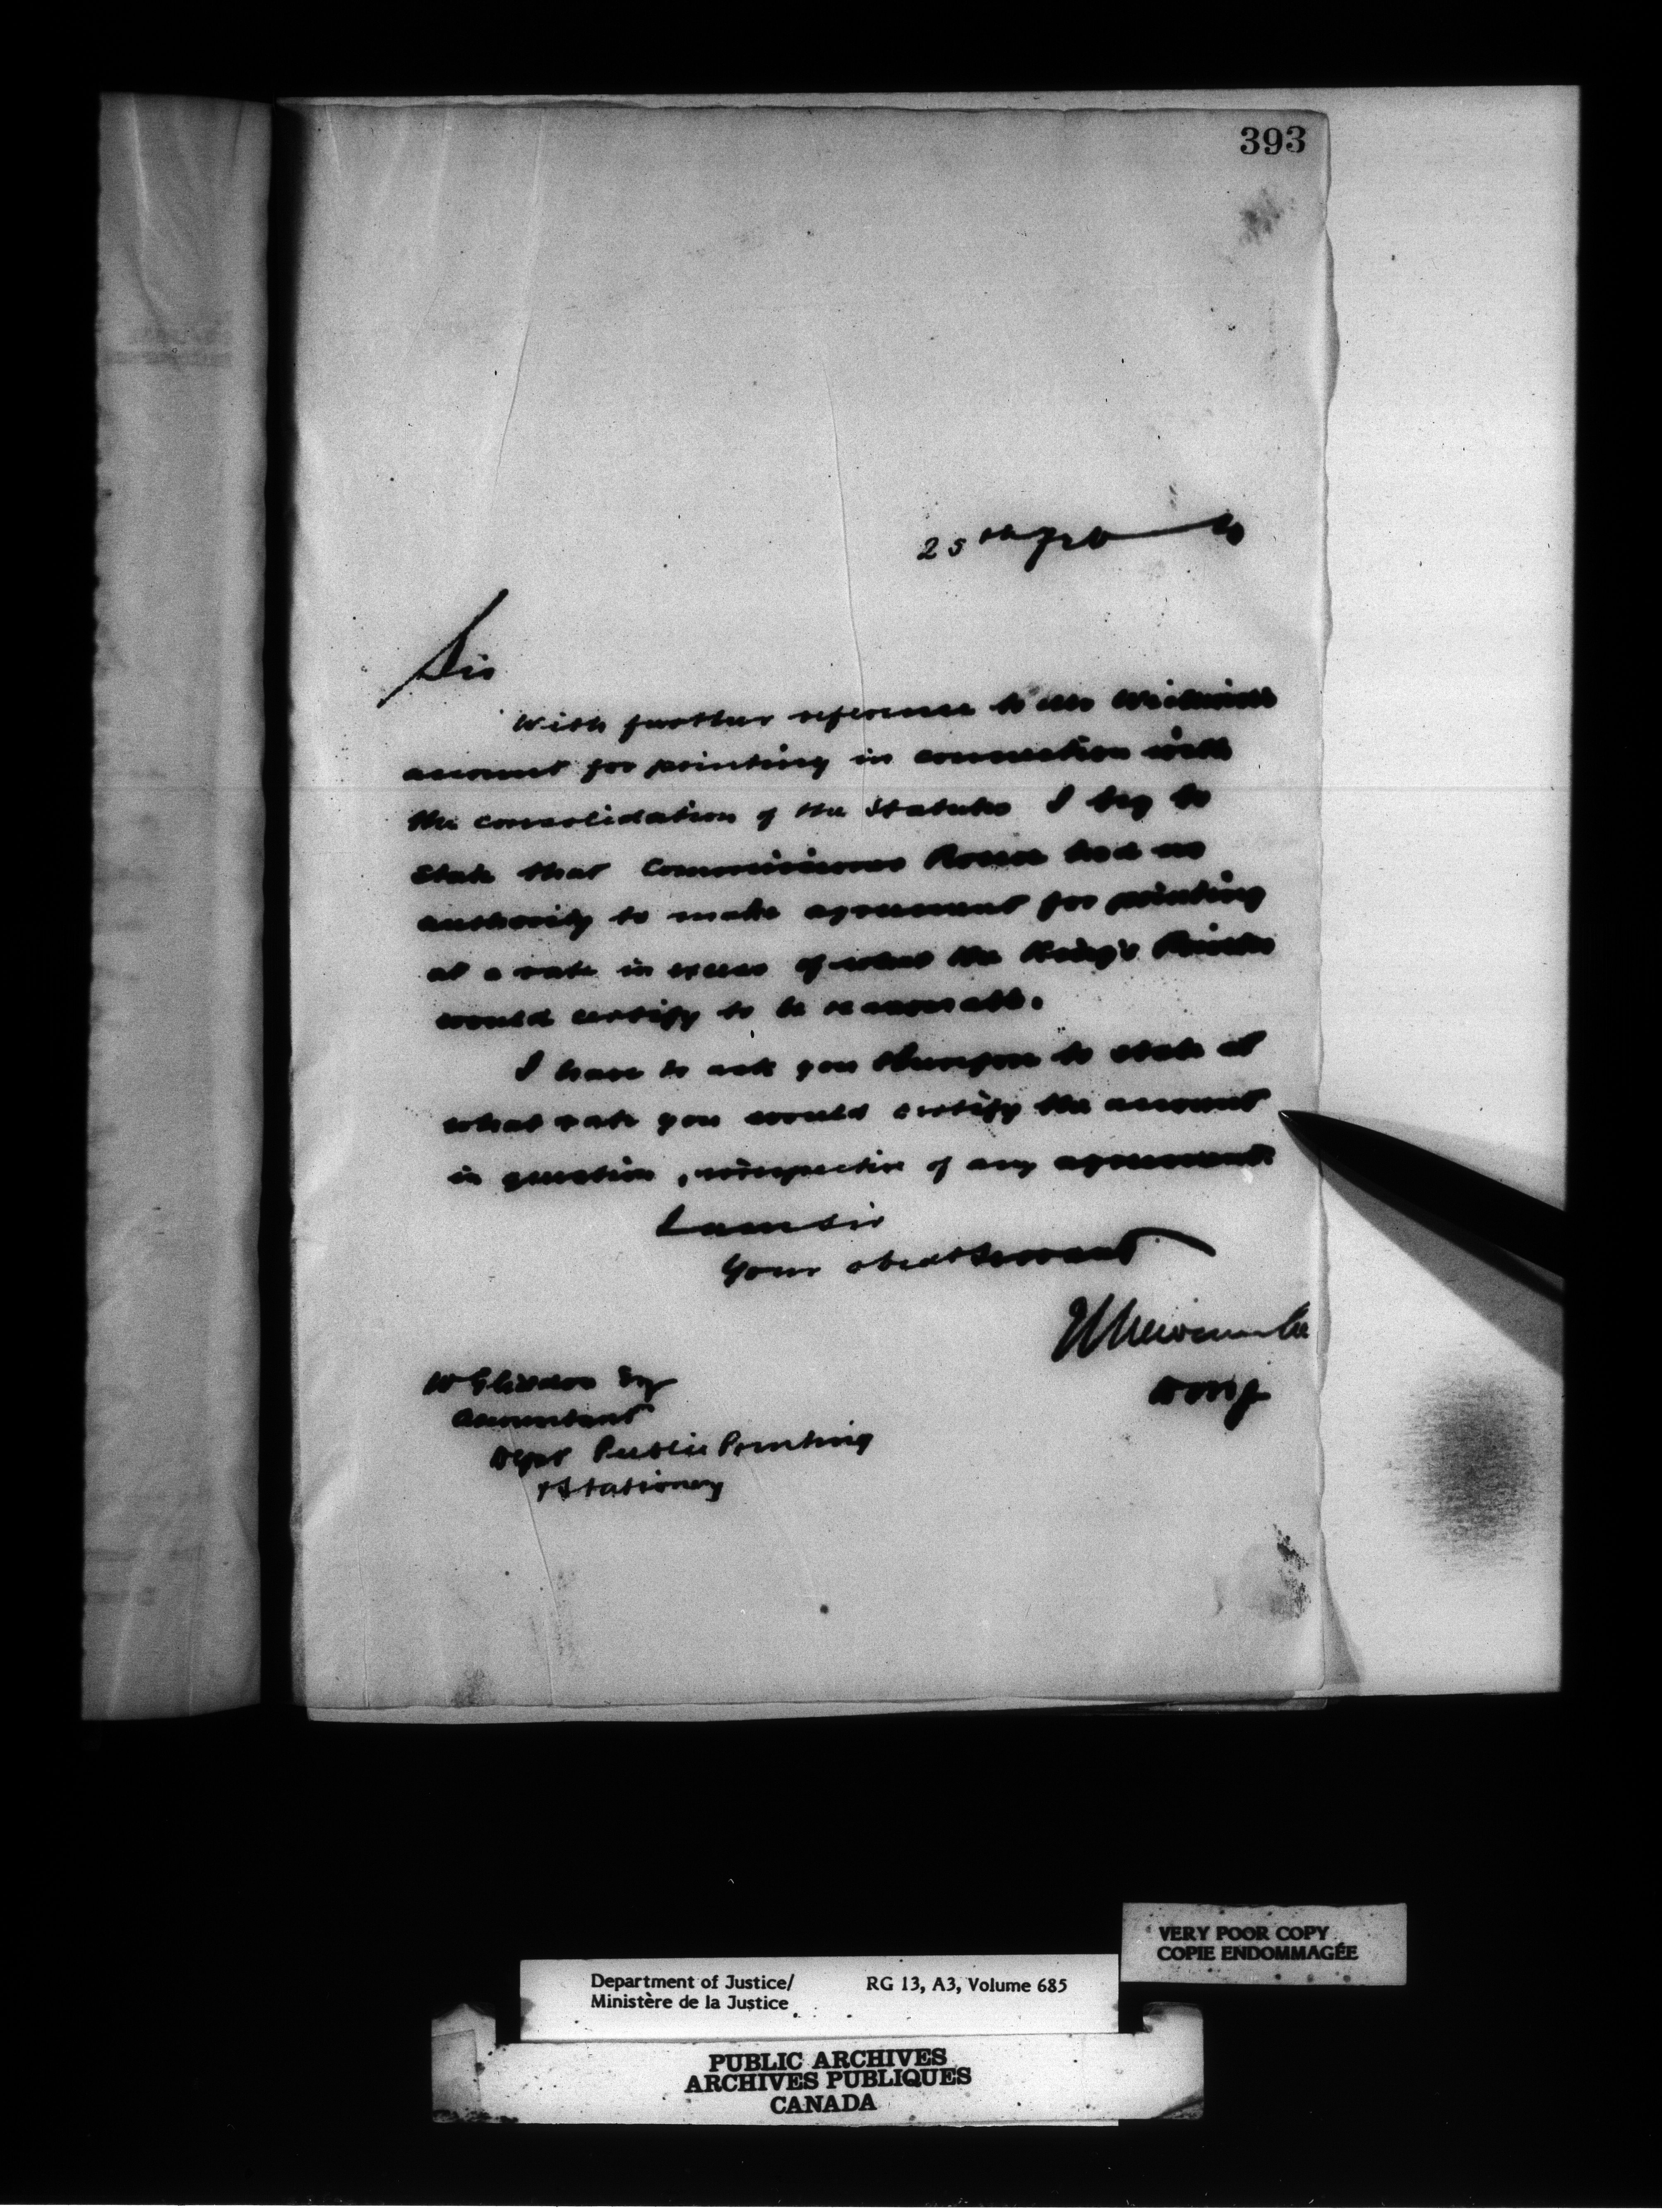 393
25th Feb
Sir
With further reference to
account for printing in connection with
the consolidation of the Statutes I beg to
state that Commissioner had no
authority to make agreement for printing
at a rate in excess of what the King's Printer
would certify to be reasonable.
I have to ask you therefore to state at
what rate you would certify the account
in question, irrespective of any agreement.
I am sir
Your obedt servant
Newcombe
DMJ
W Gliddon Esq
Accountant
Dept Public Printing
& Stationery
VERY POOR COPY
COPIE ENDOMMAGÉE
Department of Justice/ RG 13, A3, Volume 685
Ministère de la Justice
PUBLIC ARCHIVES
ARCHIVES PUBLIQUES
CANADA